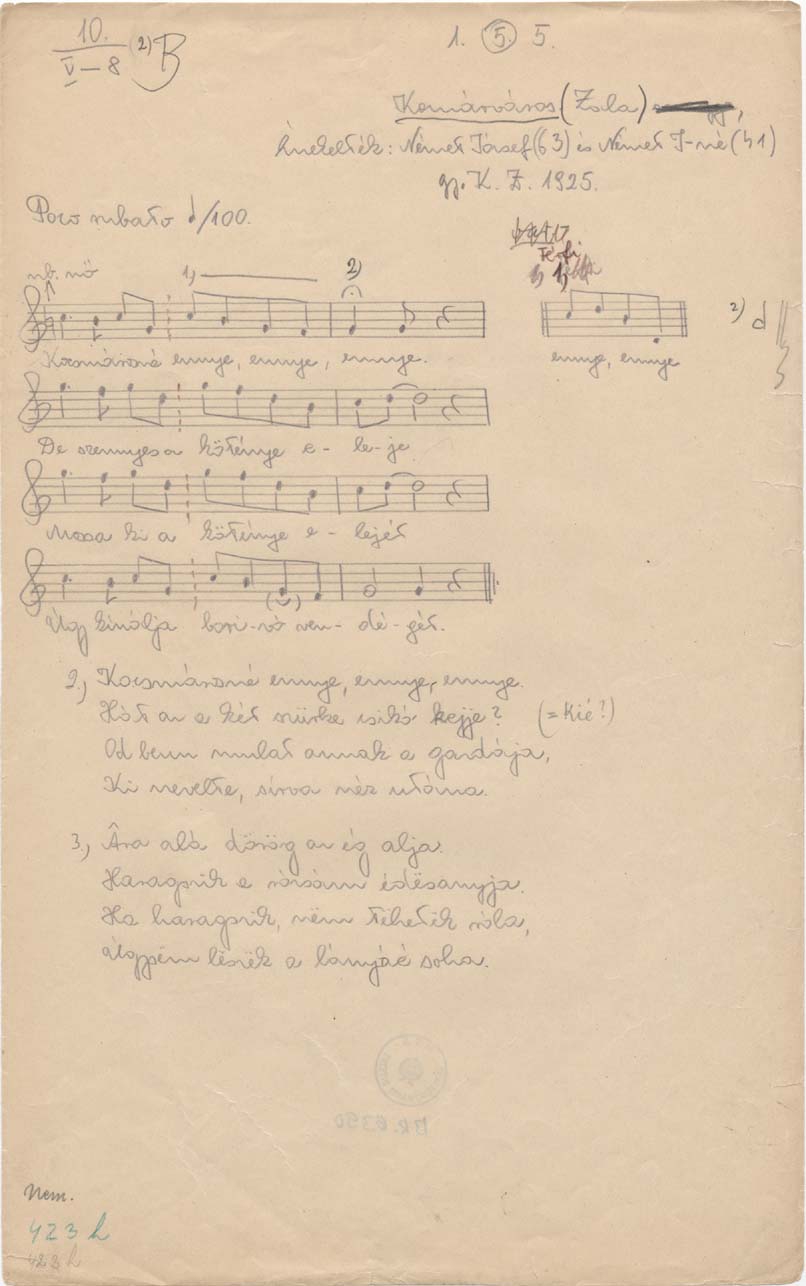 10.
V–8
2) B
1. 5. 5.
Komárváros (Zala)
Énekelték: Német József (63) és Német J-né (41)
gy. K. Z. 1925.
Poco rubato /100.
nb. nő
1)
2)
Férfi
1)
2)
Kocsmárosné ennye, ennye, ennye.
ennye, ennye
De szennyes a köténye e- le-je
Mossa ki a köténye e- lejét
Úgy kinálja bori-vó ven- dé-gét.
2.) Kocsmárosné ennye, ennye, ennye.
Hát az a két szürke csikó kejje? (= Kié?)
Od benn mulat annak a gazdája,
Ki nevelte, sírva néz utána.
3.) Ára alá dörög az ég alja.
Haragszik a rózsám édësanyja.
Ha haragszik, nëm tëhetëk róla,
Úgysëm lëszëk a lányáé soha.
BR. 6350
Nem.
423 h
423 h